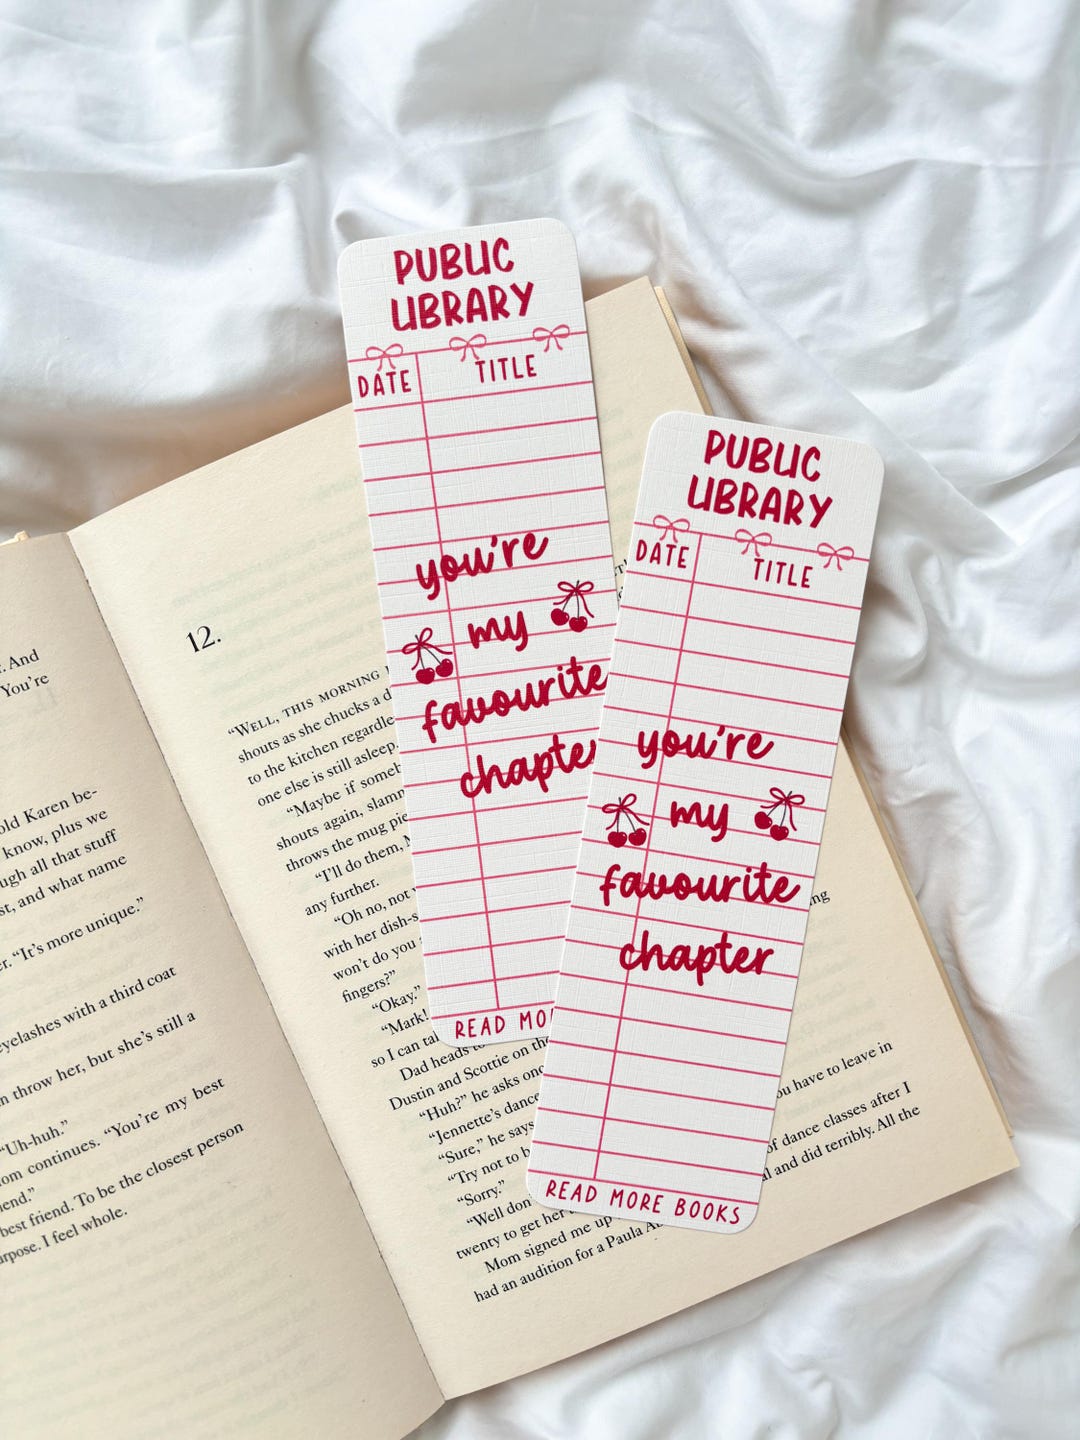 PUBLIC
LIBRARY
DATE
TITLE
you're
my
favourite
chapter
READ MO
PUBLIC
LIBRARY
DATE
TITLE
you're
my
favourite
chapter
READ MORE BOOKS
. And
You're
old Karen be-
know, plus we
ugh all that stuff
st, and what name
r. "It's more unique."
eyelashes with a third coat
n throw her, but she's still a
"Uh-huh."
om continues. "You're my best
end."
best friend. To be the closest person
rpose. I feel whole.
12.
"WELL, THIS MORNING
shouts as she chucks a d
to the kitchen regardle
one else is still asleep.
"Maybe if someb
shouts again, slamm
throws the mug pie
"I'll do them, M
any further.
"Oh no, not
with her dish-s
won't do you
fingers?"
"Okay."
"Mark!
so I can ta
Dad heads to
Dustin and Scottie on the
"Huh?" he asks onc
"Jennette's dance
"Sure," he says
"Try not to b
"Sorry."
"Well don'
twenty to get her
Mom signed me up
had an audition for a Paula A
ing
ou have to leave in
of dance classes after I
l and did terribly. All the